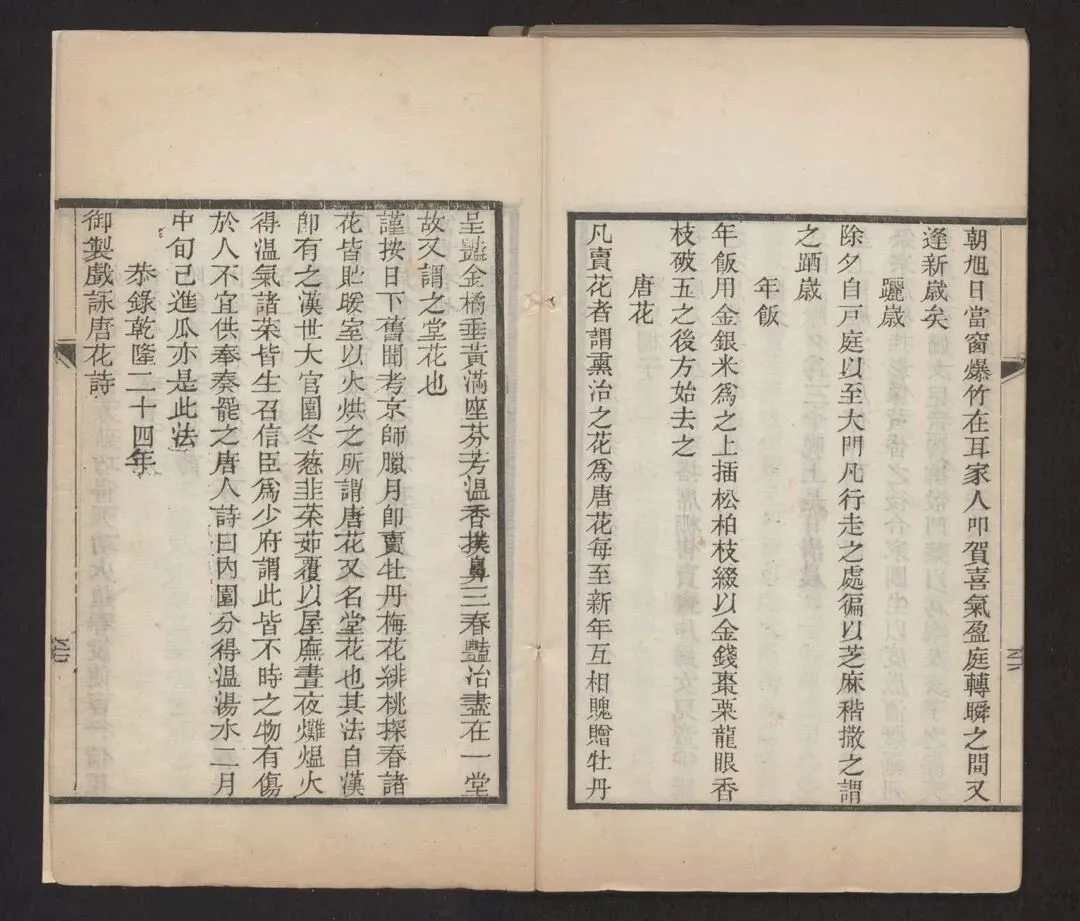 朝旭日當窗爆竹在耳家人叩賀喜氣盈庭轉瞬之間又
逢新歲矣
躧歲
除夕自戸庭以至大門凡行走之處徧以芝麻稭撒之謂
之跴歲
年飯
年飯用金銀米爲之上插松柏枝綴以金錢棗栗龍眼香
枝破五之後方始去之
唐花
凡賣花者謂熏治之花爲唐花每至新年互相餽贈牡丹
呈豔金橘垂黃滿座芬芳温香撲鼻三春豔冶盡在一堂
故又謂之堂花也
謹按日下舊聞考京師臘月卽賣牡丹梅花緋桃探春諸
花皆貯暖室以火烘之所謂唐花又名堂花也其法自漢
卽有之漢世大官園冬葱韭菜茹覆以屋廡晝夜爇熅火
得温氣諸菜皆生召信臣爲少府謂此皆不時之物有傷
於人不宜供奉奏罷之唐人詩曰內園分得温湯水二月
中旬已進瓜亦是此法
恭錄乾隆二十四年
御製戲詠唐花詩